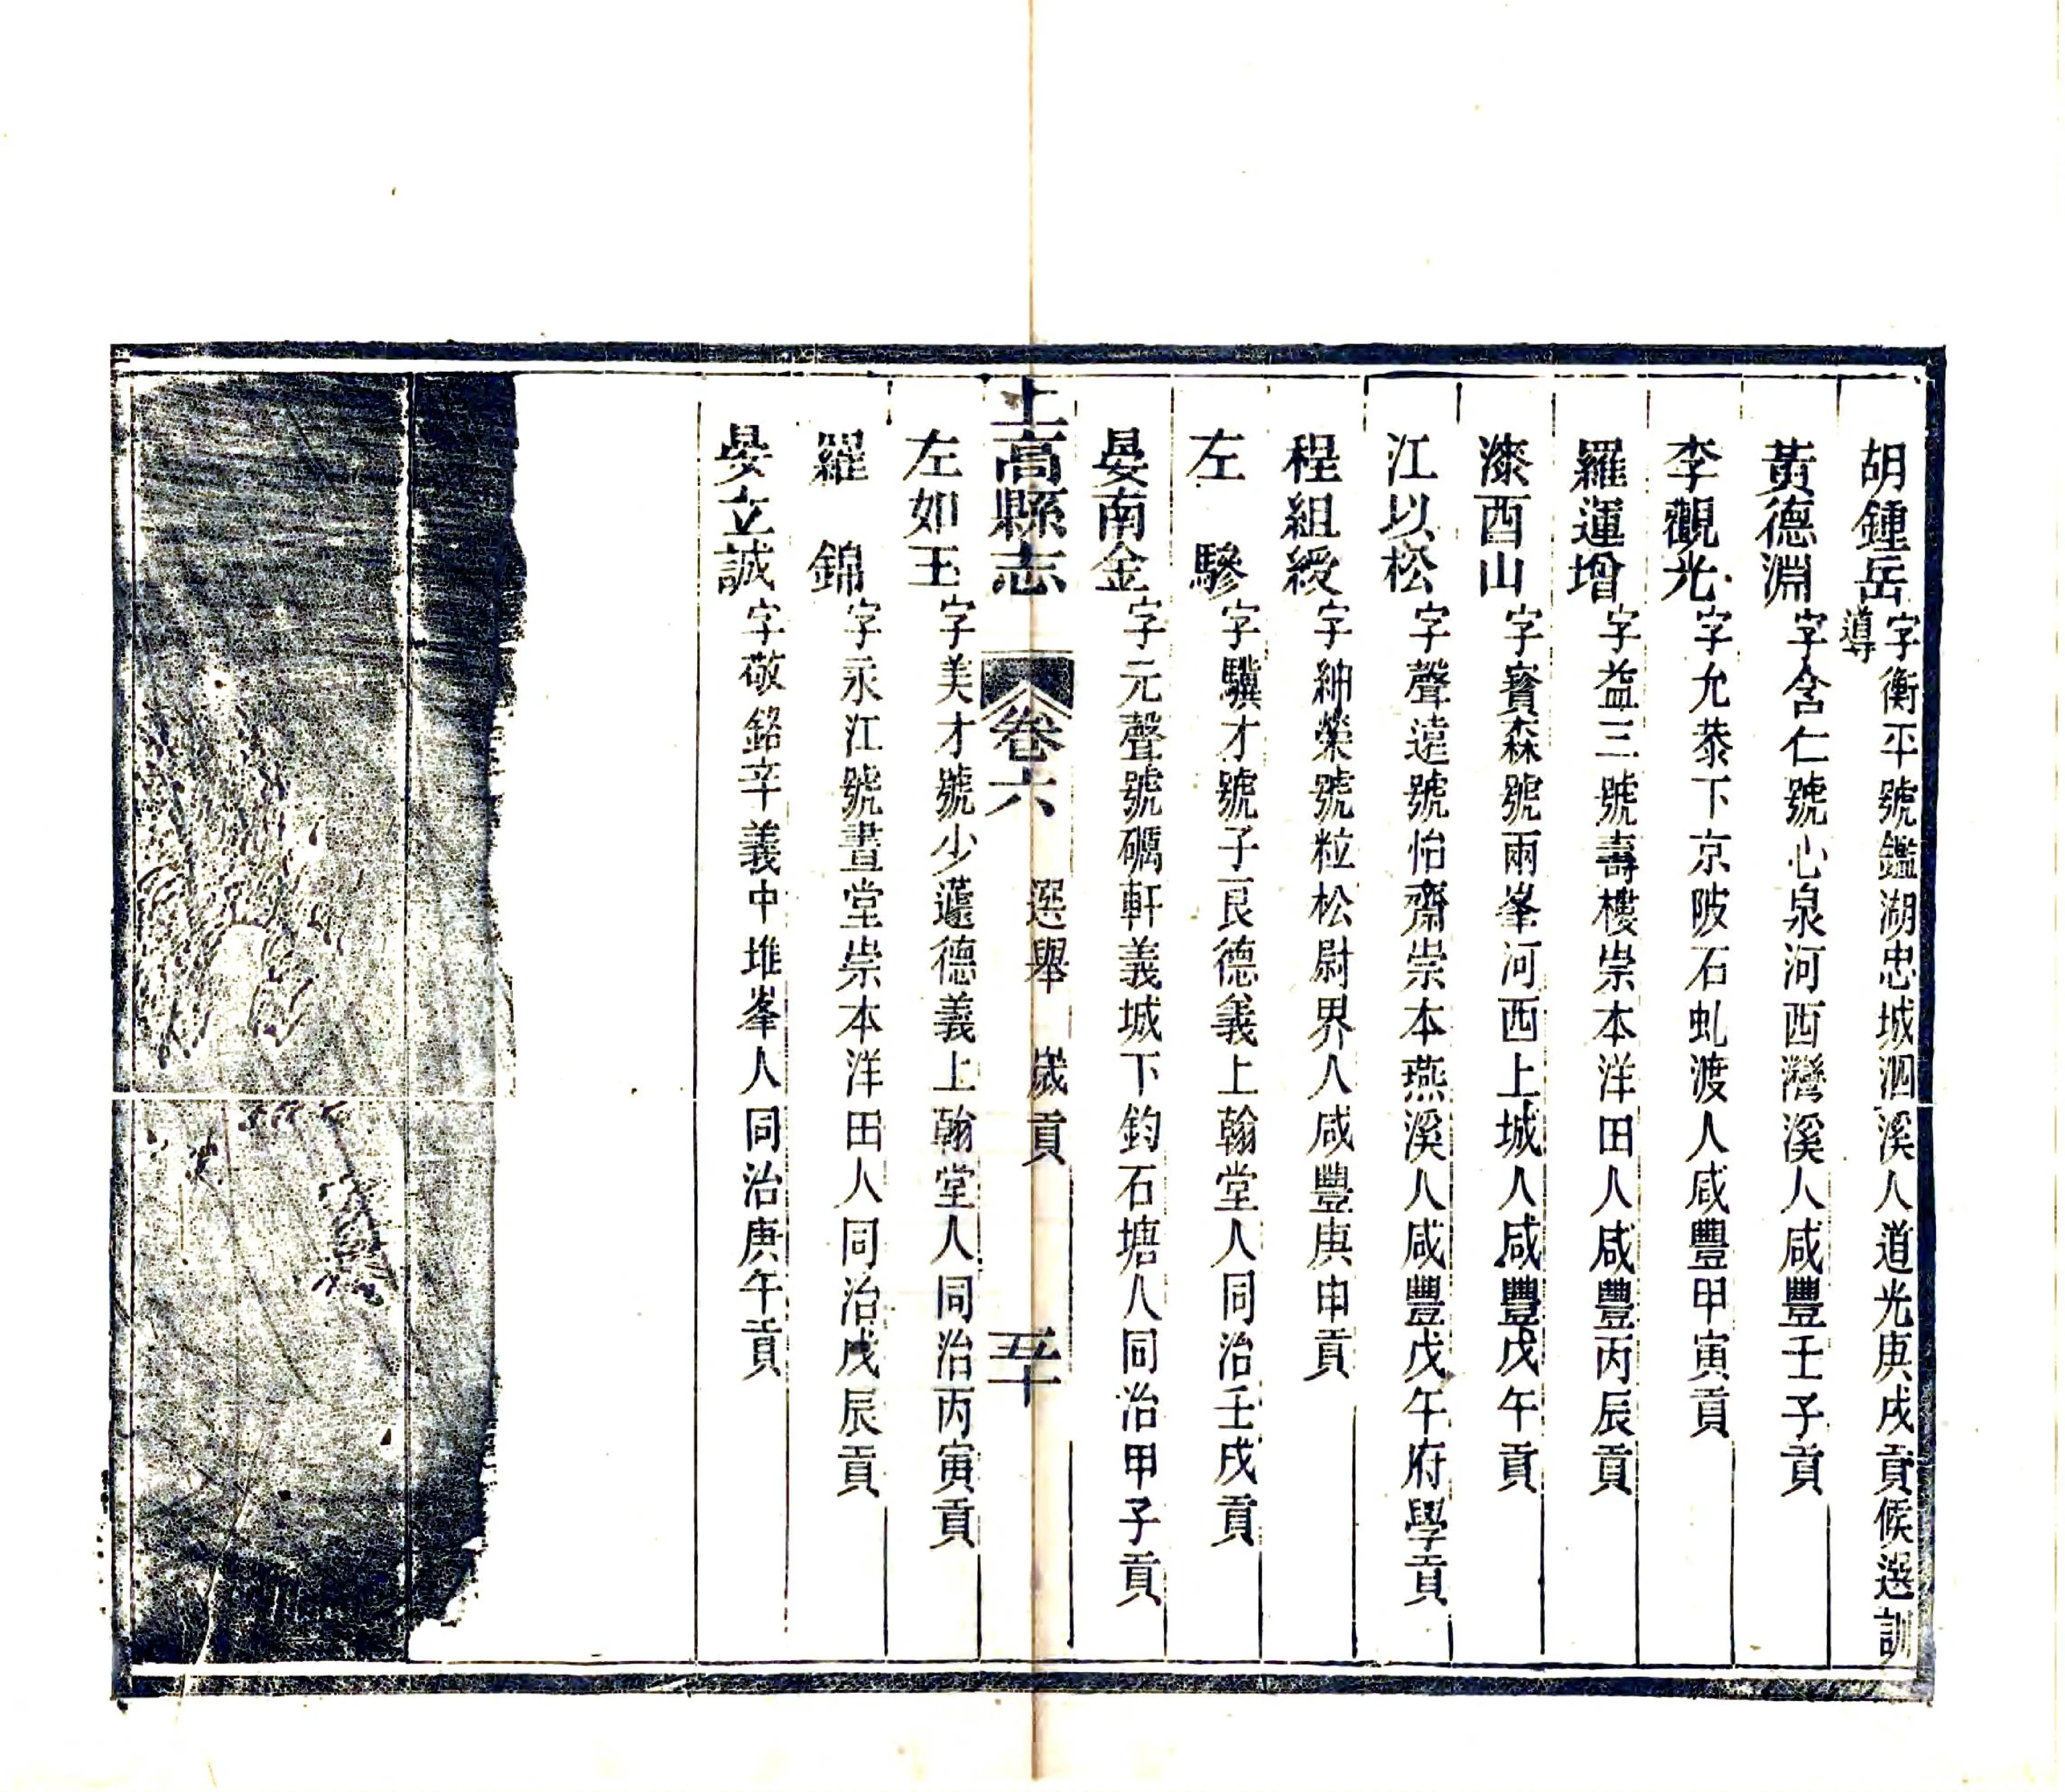 胡鍾岳字衡平號鑑湖忠城泗溪人道光庚戌貢候選訓
導
黃德淵字含仁號心泉河西灣溪人咸豐壬子貢
李觀光字允恭下京陂石虬渡人咸豐甲寅貢
羅運增字益三號壽樓崇本洋田人咸豐丙辰貢
漆酉山字賓森號兩峯河西上城人咸豐戊午貢
江以松字聲遠號怡齋崇本燕溪人咸豐戊午府學貢
程組綬字紬榮號粒松尉界人咸豐庚申貢
左驂字驥才號子艮德義上翰堂人同治壬戌貢
晏南金字元聲號礪軒義城下鈞石塘人同治甲子貢
上高縣志 卷六 選舉 歲貢 五十
左如玉字美才號少蘧德義上翰堂人同治丙寅貢
羅錦字永江號晝堂崇本洋田人同治戊辰貢
晏立誠字敬銘辛義中堆峯人同治庚午貢